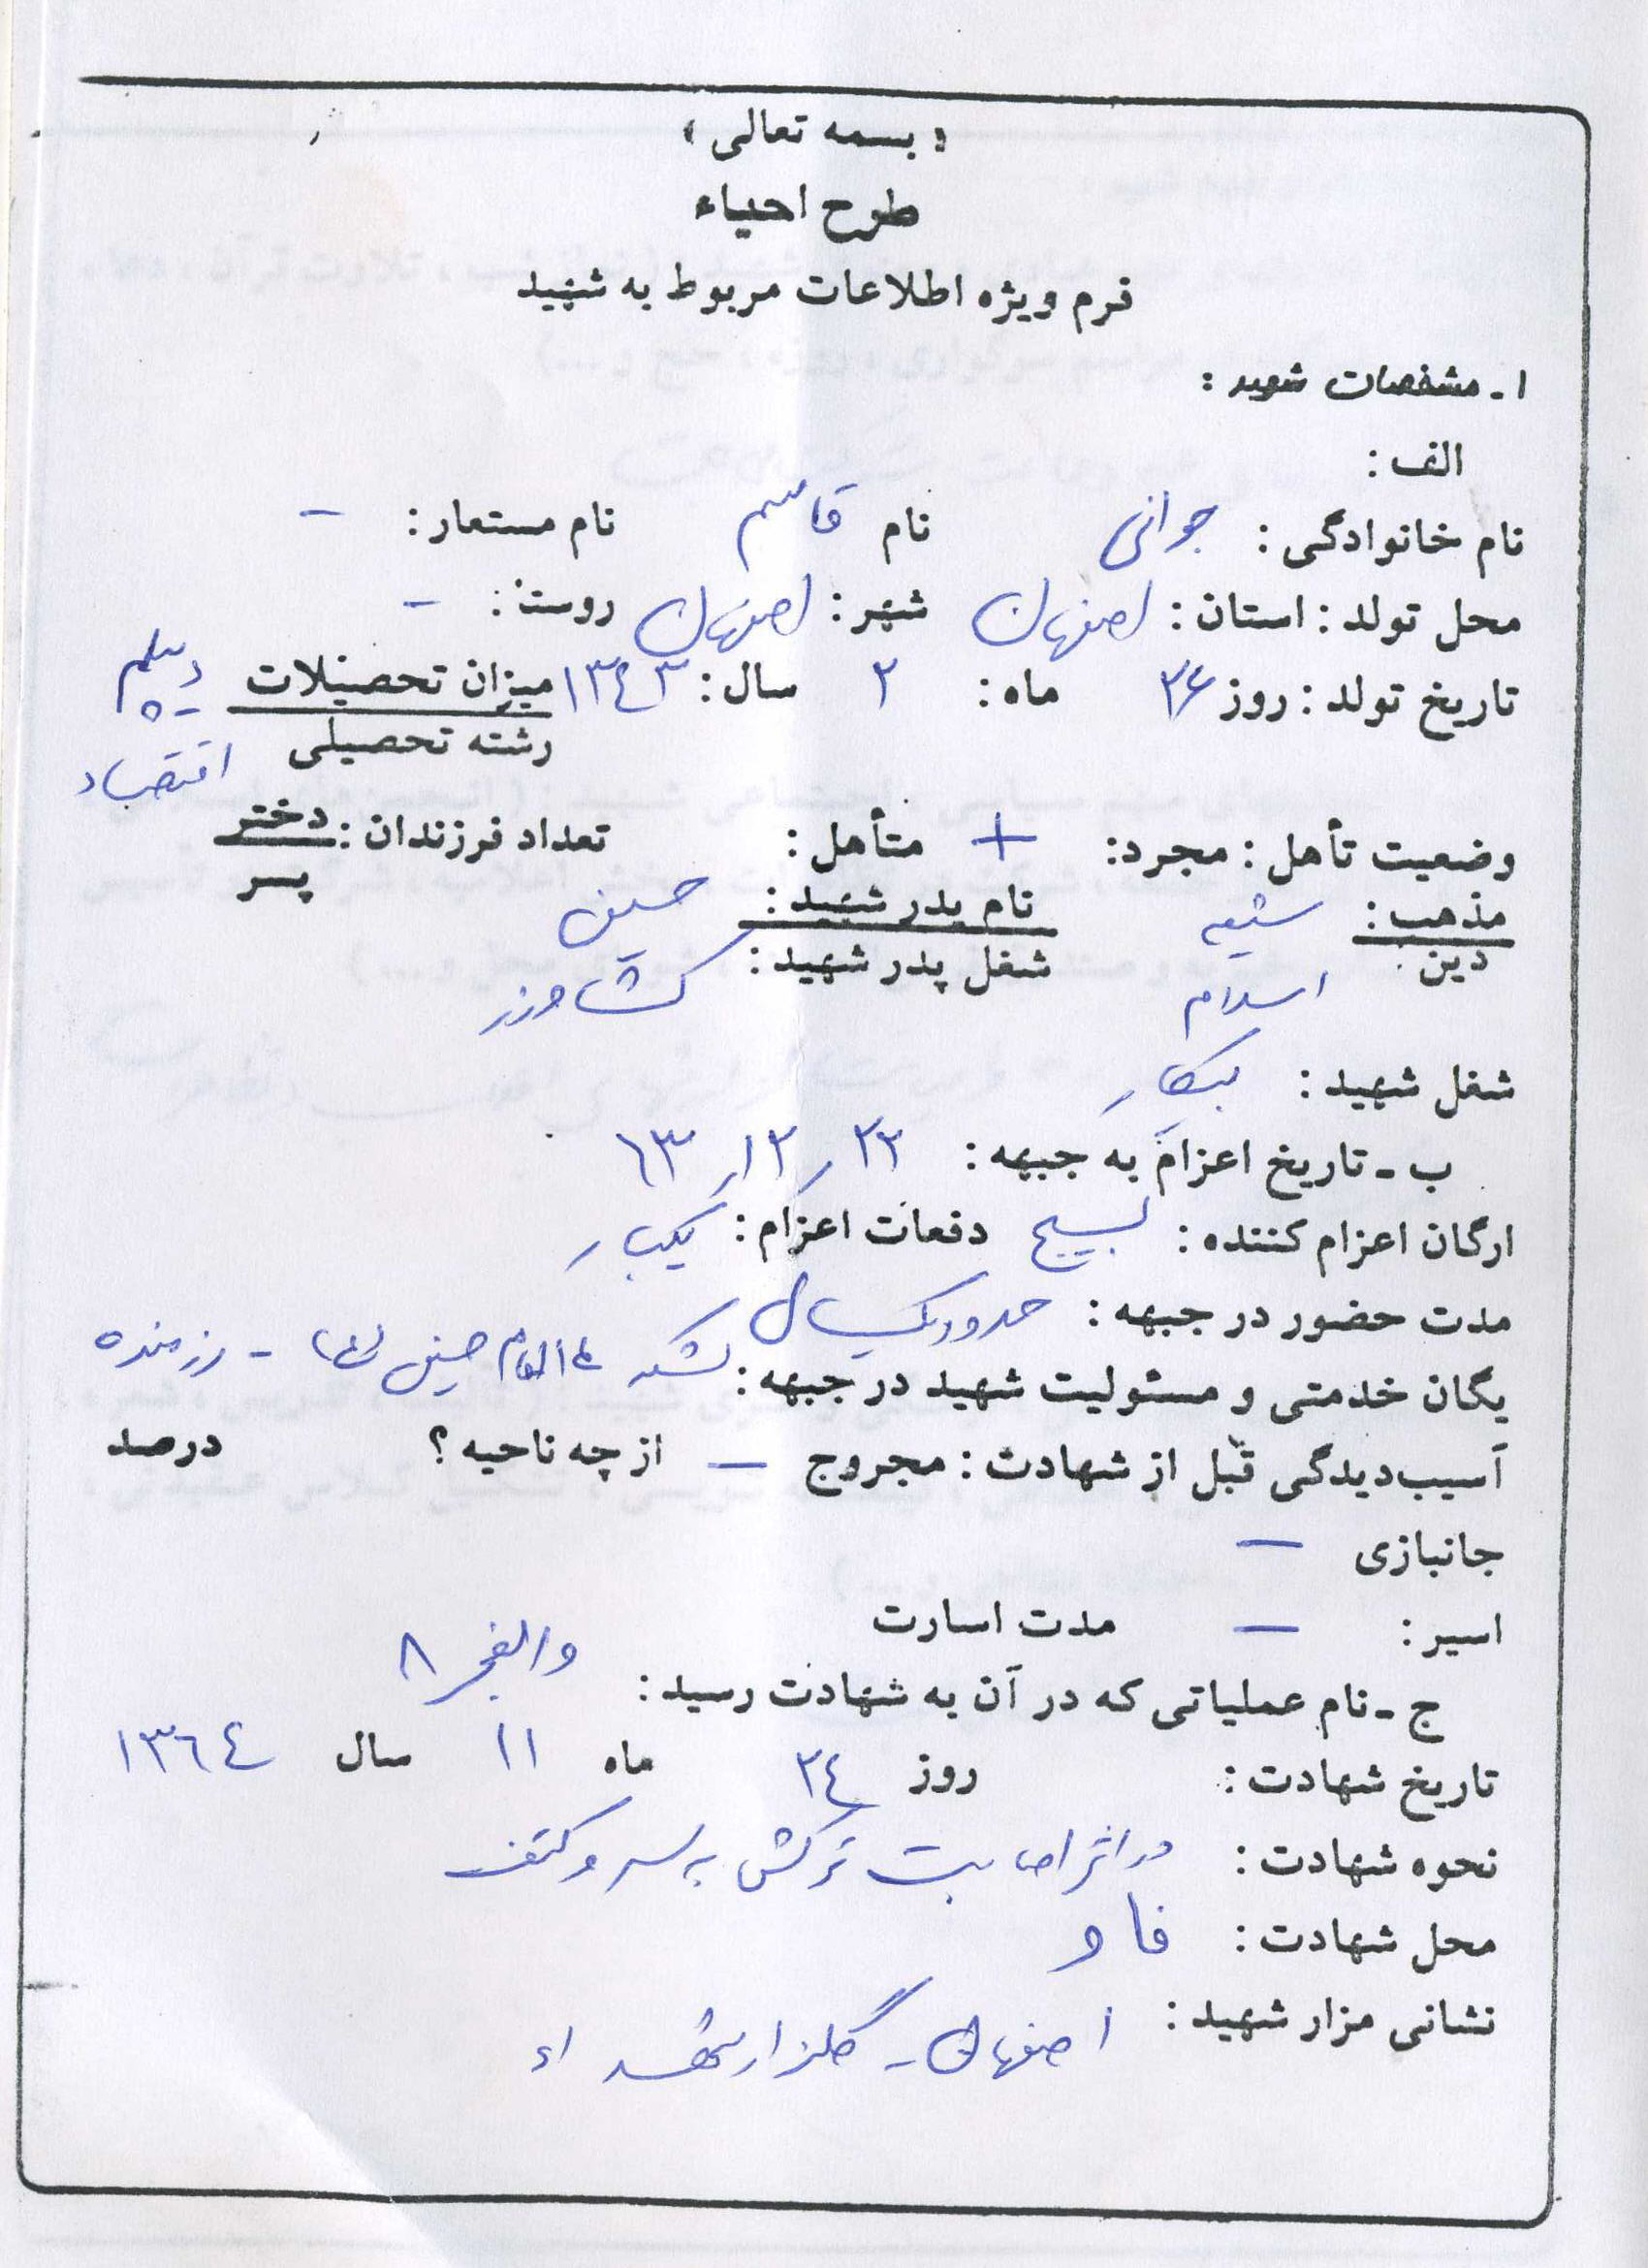 « بسمه تعالی »
طرح احیاء
فرم ویژه اطلاعات مربوط به شهید
۱ـ مشخصات شهید :
الف :
نام خانوادگی : جوانی نام قاسم نام مستعار : –
محل تولد : استان : اصفهان شهر : اصفهان روستا : –
تاریخ تولد : روز ۲۶ ماه : ۲ سال : ۱۳۴۳ میزان تحصیلات دیپلم
رشته تحصیلی اقتصاد
وضعیت تأهل : مجرد : + متأهل : تعداد فرزندان : دختر
پسر
مذهب : شیعه نام پدر شهید : حسین
دین : اسلام شغل پدر شهید : کشاورز
شغل شهید : بیکار
ب ـ تاریخ اعزام به جبهه : ۲۳ ر ۱۲ ر ۶۳
ارگان اعزام کننده : بسیج دفعات اعزام : یکبار
مدت حضور در جبهه : حدود یکسال
یگان خدمتی و مسئولیت شهید در جبهه : لشکر ۱۴ امام حسین (ع) - رزمنده
آسیب‌دیدگی قبل از شهادت : مجروح – از چه ناحیه ؟ درصد
جانبازی –
اسیر : – مدت اسارت
ج ـ نام عملیاتی که در آن به شهادت رسید : والفجر ۸
تاریخ شهادت : روز ۲۴ ماه ۱۱ سال ۱۳۶۴
نحوه شهادت : در اثر اصابت ترکش به سر و کتف
محل شهادت : فاو
نشانی مزار شهید : اصفهان - گلزار شهداء